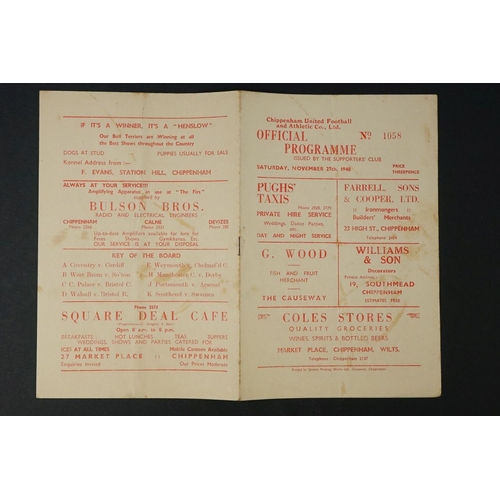 IF IT'S A WINNER, IT'S A "HENSLOW"
Our Bull Terriers are Winning at all
the Best Shows throughout the Country
DOGS AT STUD PUPPIES USUALLY FOR SALE
Kennel Address from :—
F. EVANS, STATION HILL, CHIPPENHAM
ALWAYS AT YOUR SERVICE!!!
Amplifying Apparatus in use at "The Firs"
supplied by
BULSON BROS.
RADIO AND ELECTRICAL ENGINEERS
CHIPPENHAM CALNE DEVIZES
Up-to-date Amplifiers available for hire
for Fetes, Shows, Gymkhanas, Etc.
OUR SERVICE IS AT YOUR DISPOSAL
KEY OF THE BOARD
A Coventry v. Cardiff E Weymouth v. Chelmsf'd C.
B West Brom v. Bolton H Manchester C. v. Derby
C C. Palace v. Bristol C. J Portsmouth v. Arsenal
D Walsall v. Bristol R. K Southend v. Swansea
SQUARE DEAL CAFE
Open 8 a.m. to 8 p.m.
BREAKFASTS HOT LUNCHES TEAS SUPPERS
WEDDINGS, SHOWS AND PARTIES CATERED FOR
ICES AT ALL TIMES Mobile Canteen Available
27 MARKET PLACE :: CHIPPENHAM
Enquiries Invited Our Prices Moderate
Chippenham United Football
and Athletic Co., Ltd.
OFFICIAL No 1058
PROGRAMME
ISSUED BY THE SUPPORTERS' CLUB
SATURDAY, NOVEMBER 27th, 1948 PRICE
THREEPENCE
PUGHS'
TAXIS
PRIVATE HIRE SERVICE
Weddings, Dance Parties,
etc.
DAY AND NIGHT SERVICE
FARRELL, SONS
& COOPER, LTD.
Ironmongers
Builders' Merchants
23 HIGH ST., CHIPPENHAM
G. WOOD
FISH AND FRUIT
MERCHANT
THE CAUSEWAY
WILLIAMS
& SON
Decorators
Private Address
19, SOUTHMEAD
CHIPPENHAM
ESTIMATES FREE
COLES STORES
QUALITY GROCERIES
WINES, SPIRITS & BOTTLED BEERS
MARKET PLACE, CHIPPENHAM, WILTS.
Telephone - Chippenham 2137